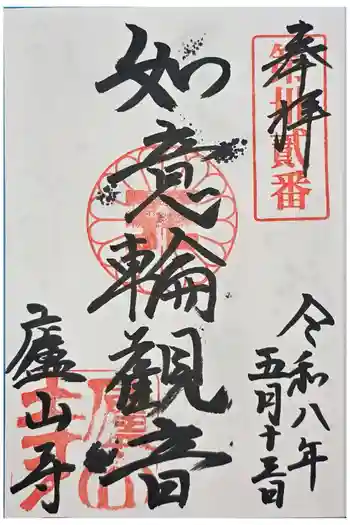 奉拝
第卅貳番
如意輪観音
令和八年
五月十三日
廬山寺